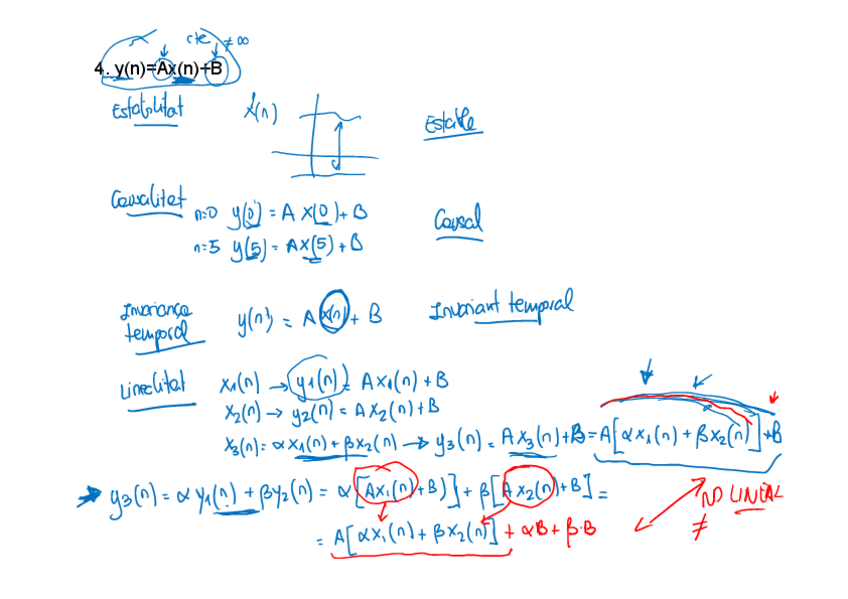 cte ≠ ∞
4. y(n)=Ax(n)+B
Estabilitat x(n) Estable
Causalitat n=0 y(0) = A x(0)+ B Causal
n=5 y(5) = Ax(5)+B
Invariança temporal y(n) = A x(n) + B Invariant temporal
Linealitat x1(n) → y1(n) = Ax1(n)+B
x2(n) → y2(n) = Ax2(n)+B
x3(n) = αx1(n)+βx2(n) → y3(n) = Ax3(n)+B = A[αx1(n)+βx2(n)]+B
y3(n) = αy1(n)+βy2(n) = α[Ax1(n)+B)]+β[Ax2(n)+B] = NO LINEAL
= A[αx1(n)+βx2(n)] + αB+β·B ≠